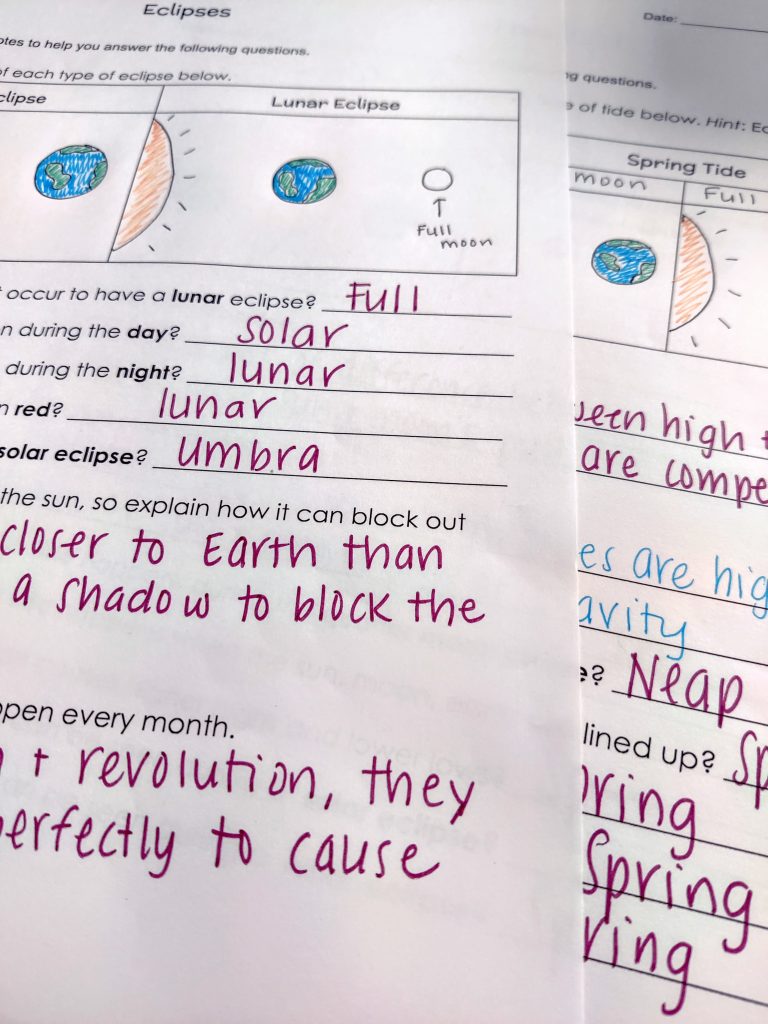 Eclipses
notes to help you answer the following questions.
of each type of eclipse below.
Lunar Eclipse
Full
moon
occur to have a lunar eclipse? Full
during the day? solar
during the night? lunar
red? lunar
solar eclipse? umbra
the sun, so explain how it can block out
closer to Earth than
a shadow to block the
every month.
+ revolution, they
to cause
Date:
questions.
of tide below. Hint:
Spring Tide
moon Full
high
are
are
Neap
lined up?
Spring